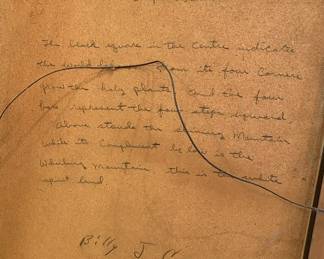 The black square in the Centre indicates
the world below. From its four Corners
grow the holy plants and the four
bars represent the four steps upward
Above stands the Mountain
while its Complement below is the
Whirling Mountain this is the white
spirit land
Billy J